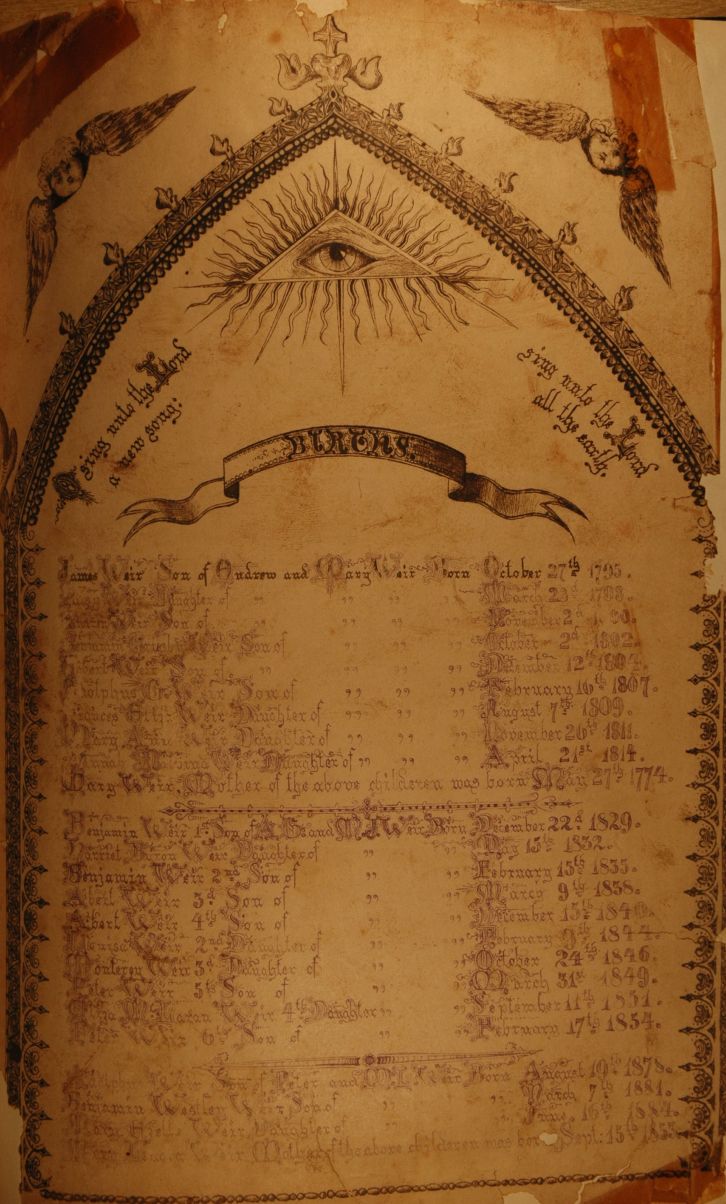 O sing unto the Lord
a new song:
sing unto the Lord
all the earth.
BIRTHS.
James Weir Son of Andrew and Mary Weir Born October 27th 1795.
Weir Daughter of " " " March 23d 1798.
Weir Son of " " " November 2d
Weir Son of " " " October 2d 1802.
Weir " " " December 12th 1804.
Adolphus G. Weir Son of " " " February 16th 1807.
Weir Daughter of " " " August 7th 1809.
Mary Ann Weir Daughter of " " " November 26th 1811.
Hannah Weir Daughter of " " " April 21st 1814.
Mary Weir, Mother of the above childeren was born May 27th 1774.
Benjamin Weir 1st Son of A. G. and M. J. Weir Born December 22d 1829.
Harriet Byron Weir Daughter of " " 1832.
Benjamin Weir 2nd Son of " " February 15th 1835.
Albert Weir 3d Son of " " March 9th 1838.
Albert Weir 4th Son of " " December 15th 1840.
Louisa Weir 2nd Daughter of " " February 1844.
Monterey Weir 3d Daughter of " " October 24th 1846.
Peter Weir 5th Son of " " March 31st 1849.
Weir 4th Daughter " " September 11th 1851.
Peter Weir 6th Son of " " February 17th 1854.
Weir Son of Peter and M. L. Weir Born August 1878.
Benjamin Westley Weir, Son of " " March 7th 1881.
Weir, Daughter of " " June 16th 1884.
Weir Mother of the above childeren was born Sept: 15th